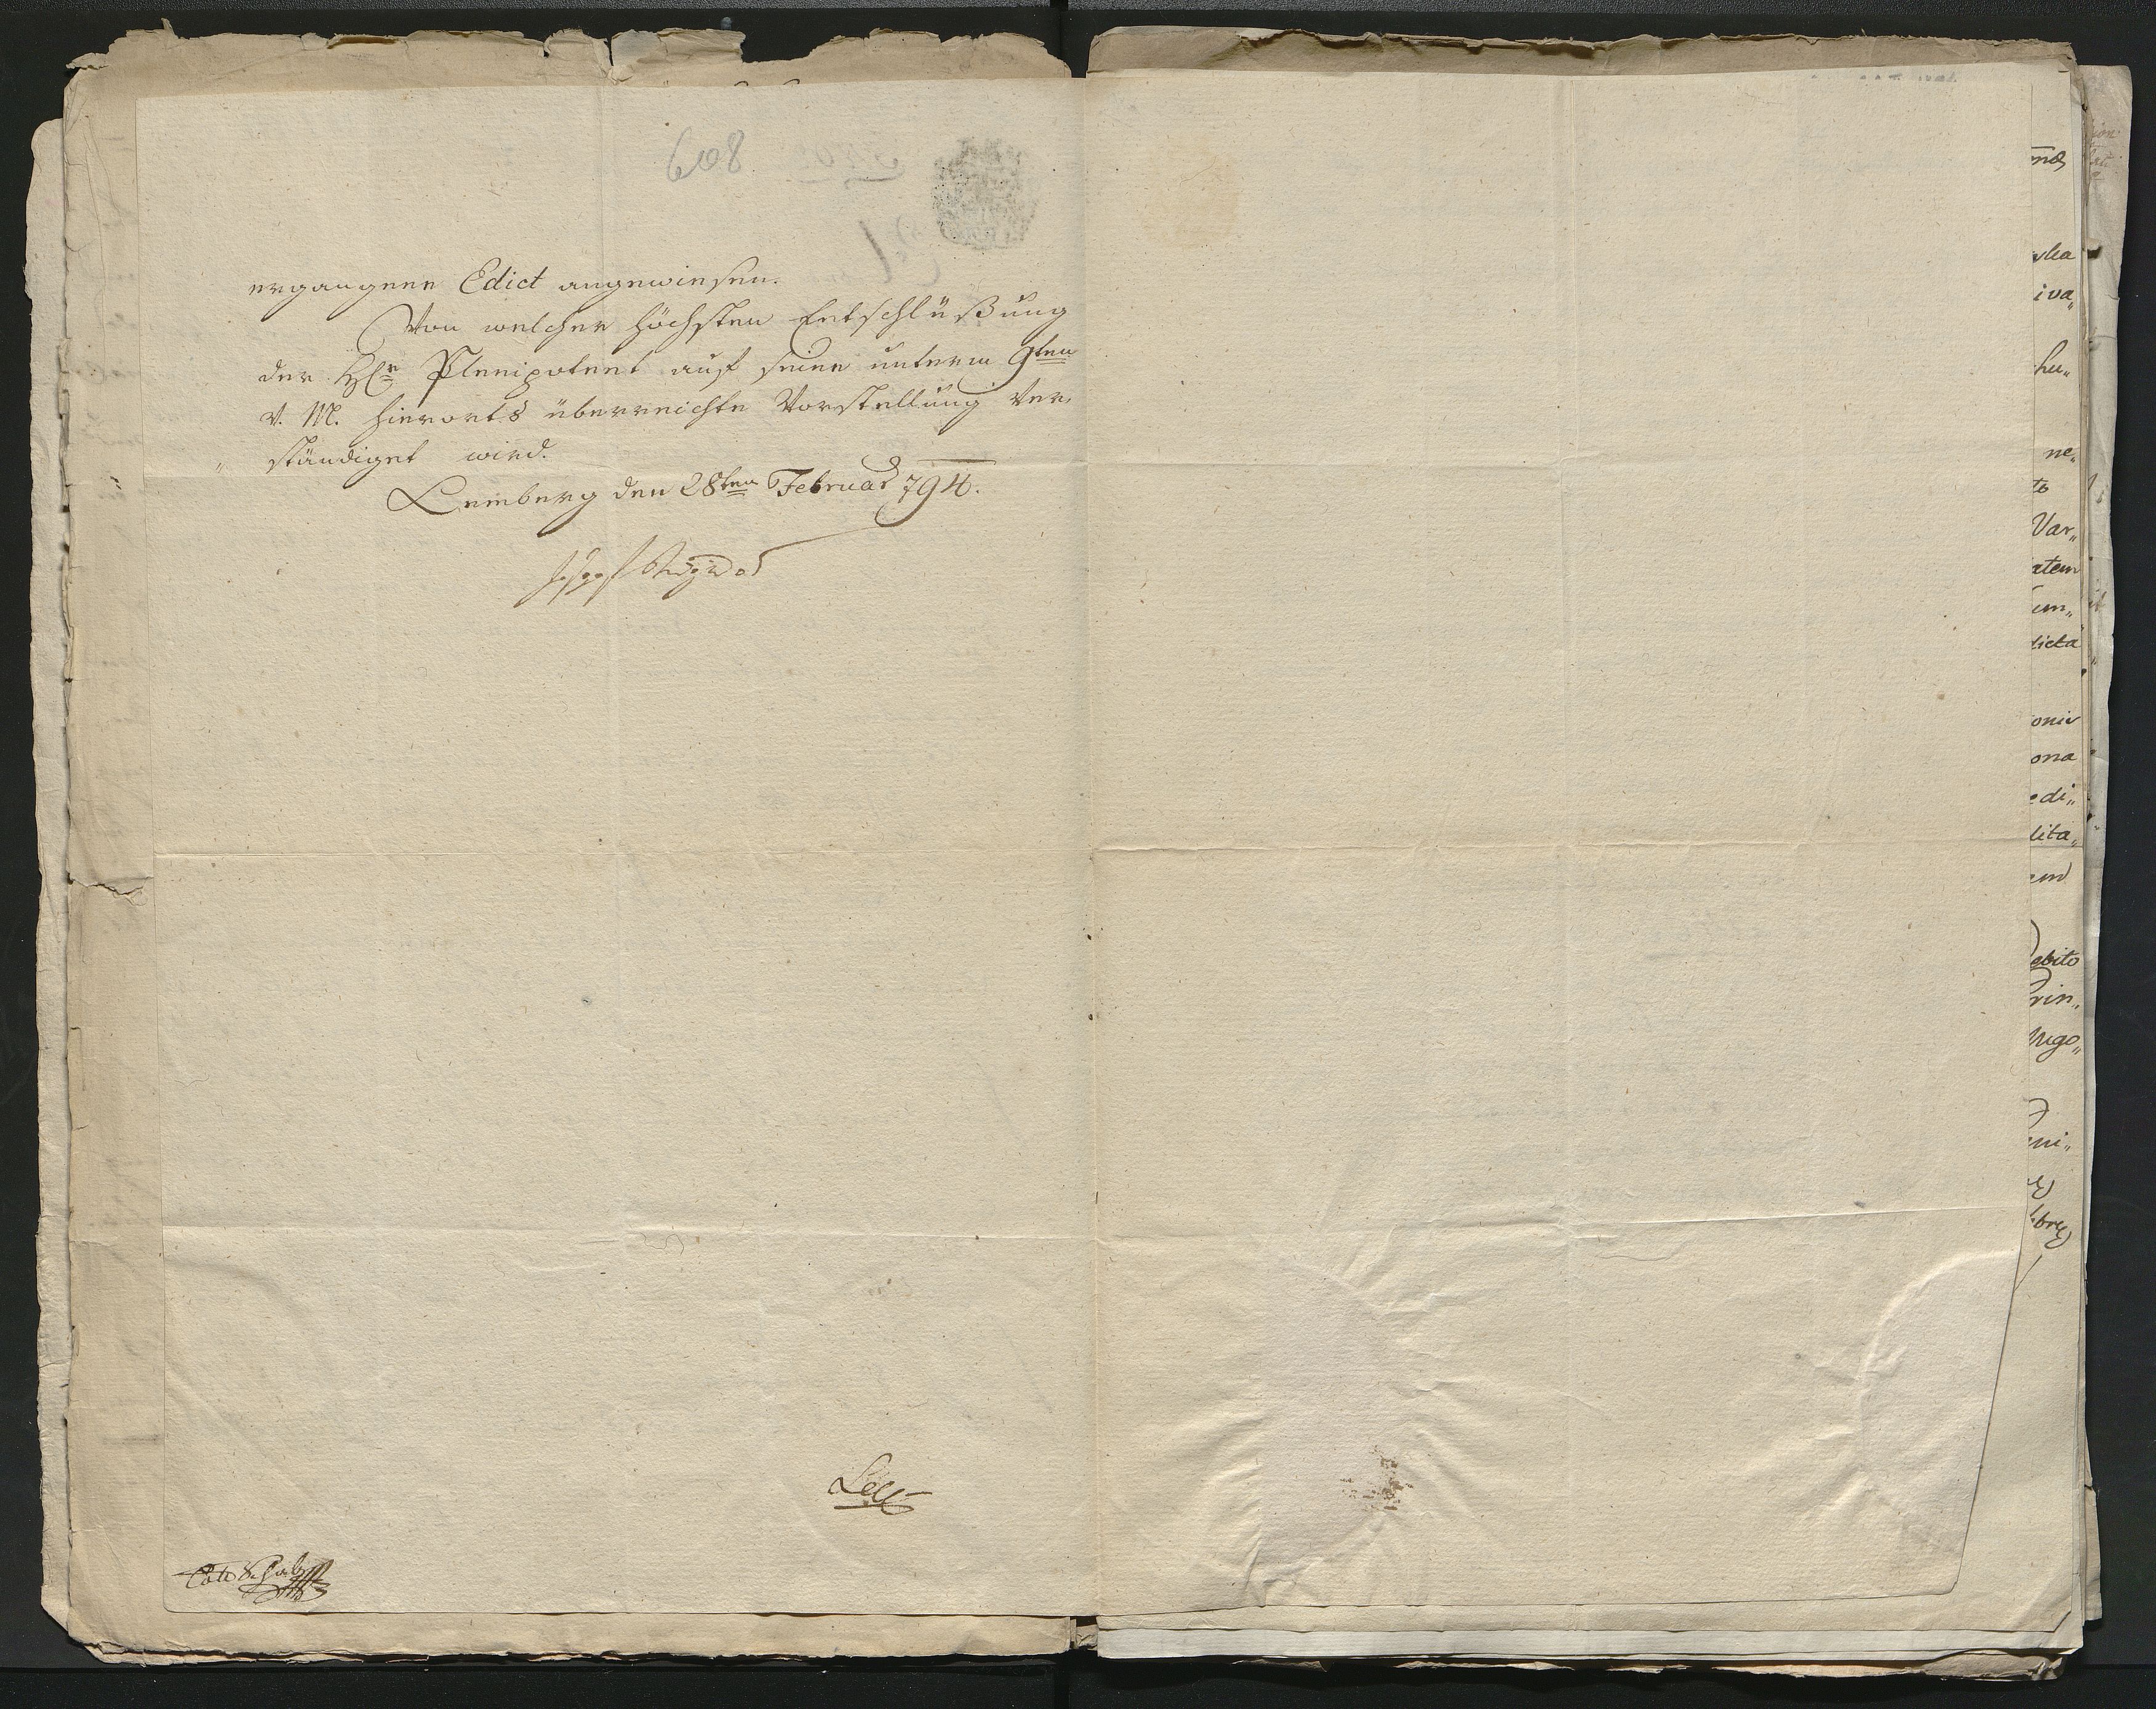 608
ergangene Edict angewiesen.
Von welcher höchsten Entschlüßung
der H. Plenipotent auf seine unterm 9ten
v. M. hierorts überreichte Vorstellung ver„
ständiget wird.
Lemberg den 28ten Februar 794.
iva„
hu„
ne„
to
Var„
atem
um„
dicta
onis
ona
edi„
dita„
em
ebito
rin„
ugo„
ni„